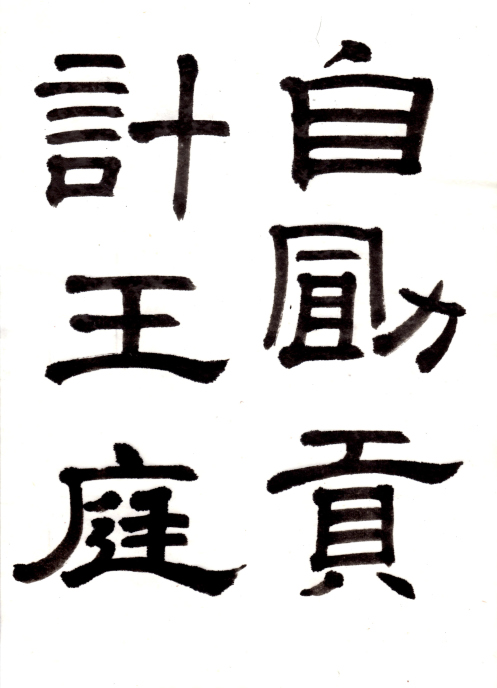 自勖貢
計王庭